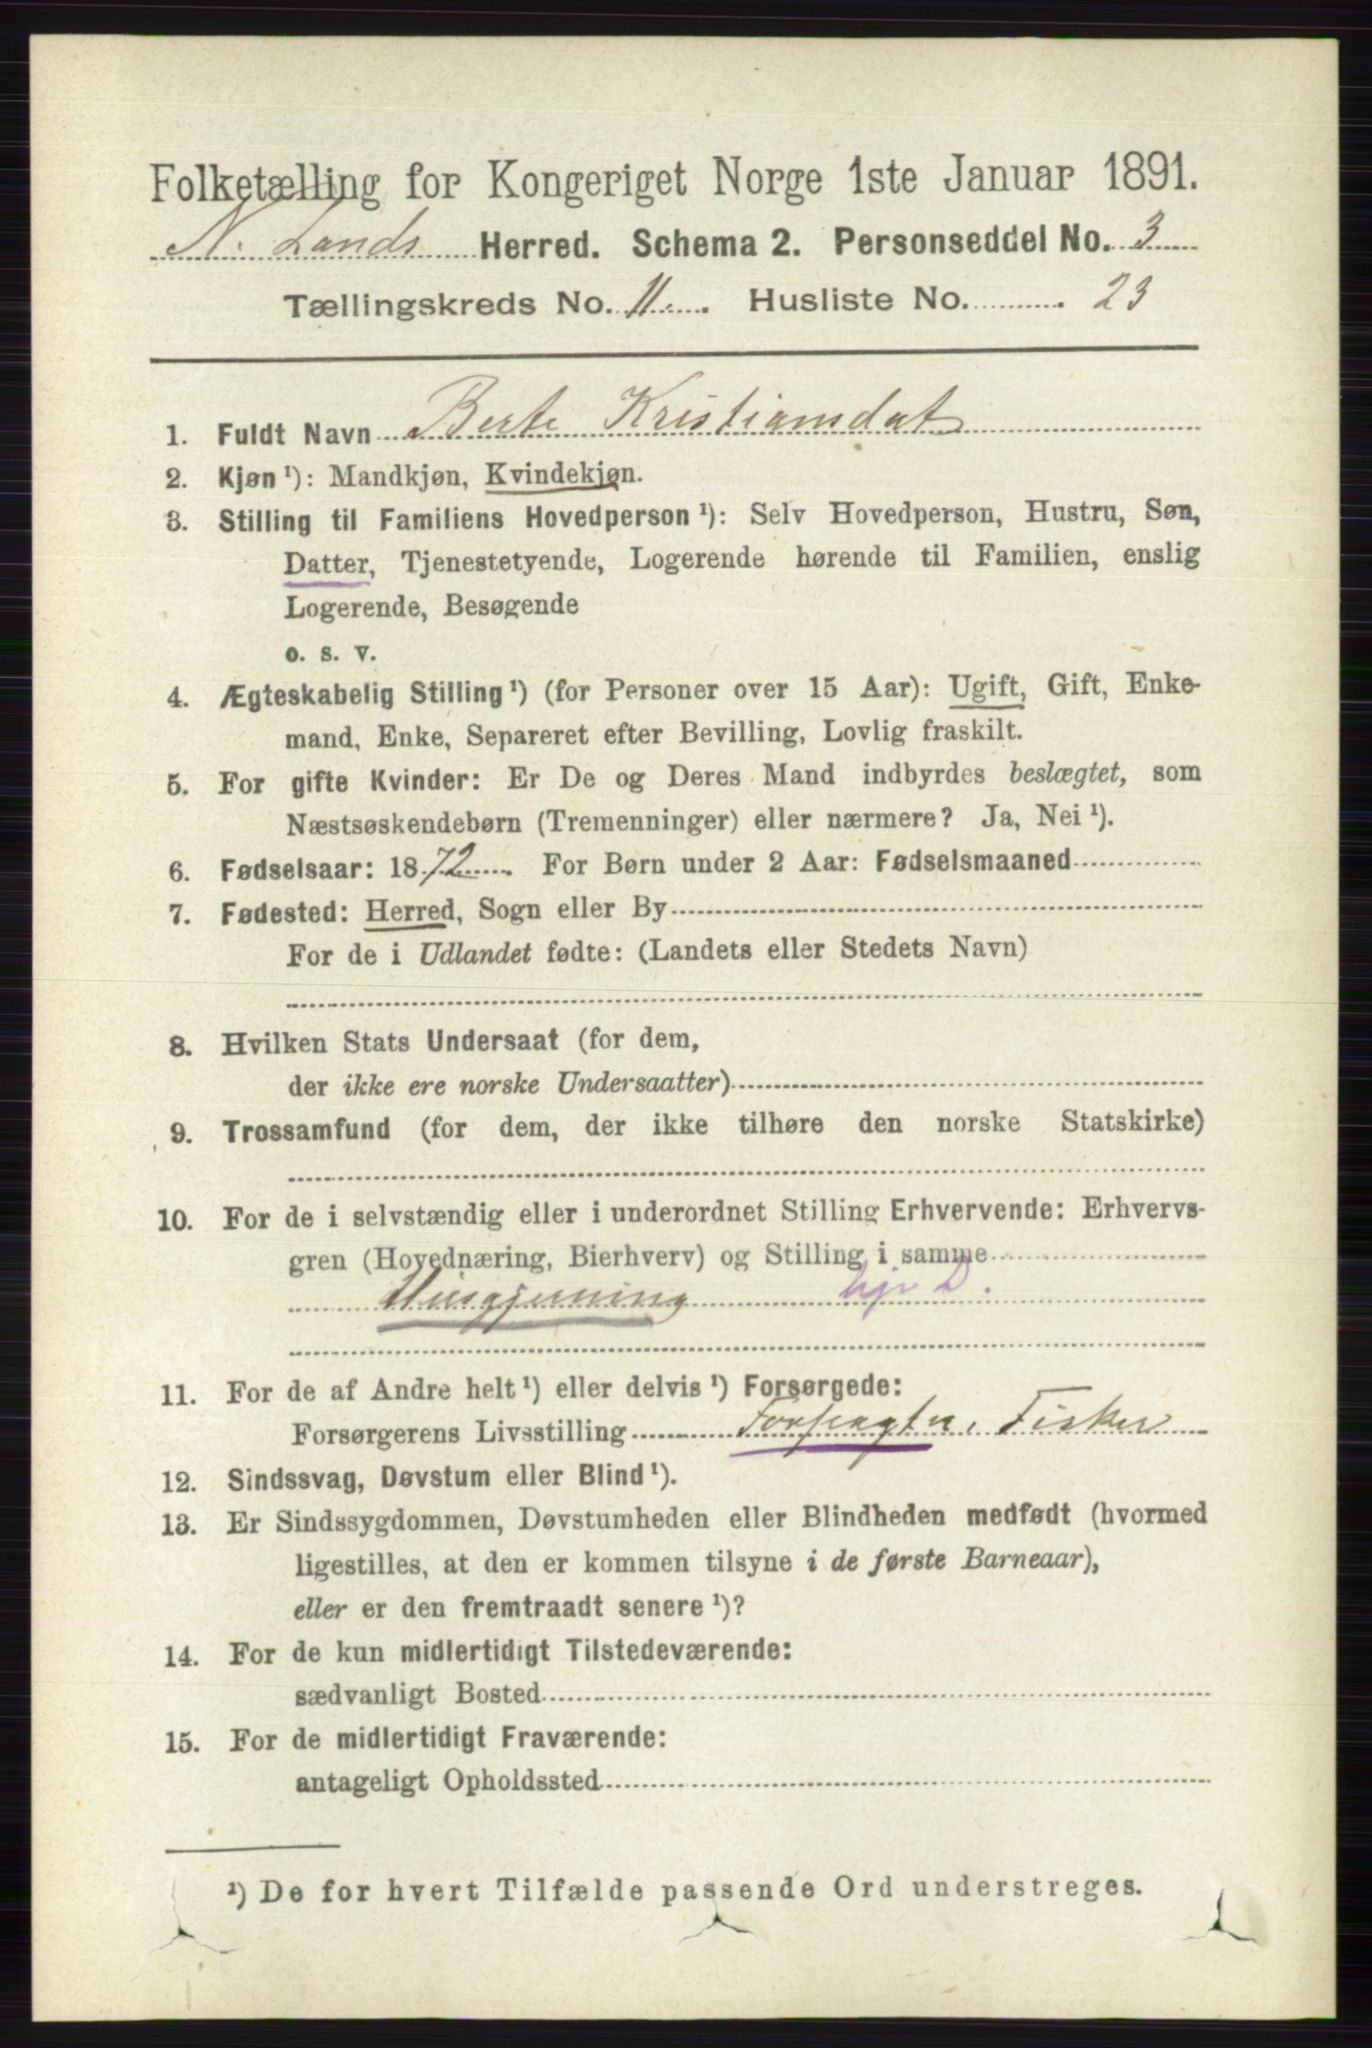 Folketælling for Kongeriget Norge 1ste Januar 1891.
N. Lands Herred. Schema 2. Personseddel No. 3
Tællingskreds No. 11. Husliste No. 23
1. Fuldt Navn Berte Kristiansdat
2. Kjøn ¹): Mandkjøn, Kvindekjøn.
3. Stilling til Familiens Hovedperson ¹): Selv Hovedperson, Hustru, Søn,
Datter, Tjenestetyende, Logerende hørende til Familien, enslig
Logerende, Besøgende
o. s. v.
4. Ægteskabelig Stilling ¹) (for Personer over 15 Aar): Ugift, Gift, Enke-
mand, Enke, Separeret efter Bevilling, Lovlig fraskilt.
5. For gifte Kvinder: Er De og Deres Mand indbyrdes beslægtet, som
Næstsøskendebørn (Tremenninger) eller nærmere? Ja, Nei ¹).
6. Fødselsaar: 1872. For Børn under 2 Aar: Fødselsmaaned
7. Fødested: Herred, Sogn eller By
For de i Udlandet fødte: (Landets eller Stedets Navn)
8. Hvilken Stats Undersaat (for dem,
der ikke ere norske Undersaatter)
9. Trossamfund (for dem, der ikke tilhøre den norske Statskirke)
10. For de i selvstændig eller i underordnet Stilling Erhvervende: Erhvervs-
gren (Hovednæring, Bierhverv) og Stilling i samme
Husgjerning hjv D.
11. For de af Andre helt ¹) eller delvis ¹) Forsørgede:
Forsørgerens Livsstilling Forpagter, Fisker
12. Sindssvag, Døvstum eller Blind ¹).
13. Er Sindssygdommen, Døvstumheden eller Blindheden medfødt (hvormed
ligestilles, at den er kommen tilsyne i de første Barneaar),
eller er den fremtraadt senere ¹)?
14. For de kun midlertidigt Tilstedeværende:
sædvanligt Bosted
15. For de midlertidigt Fraværende:
antageligt Opholdssted
¹) De for hvert Tilfælde passende Ord understreges.